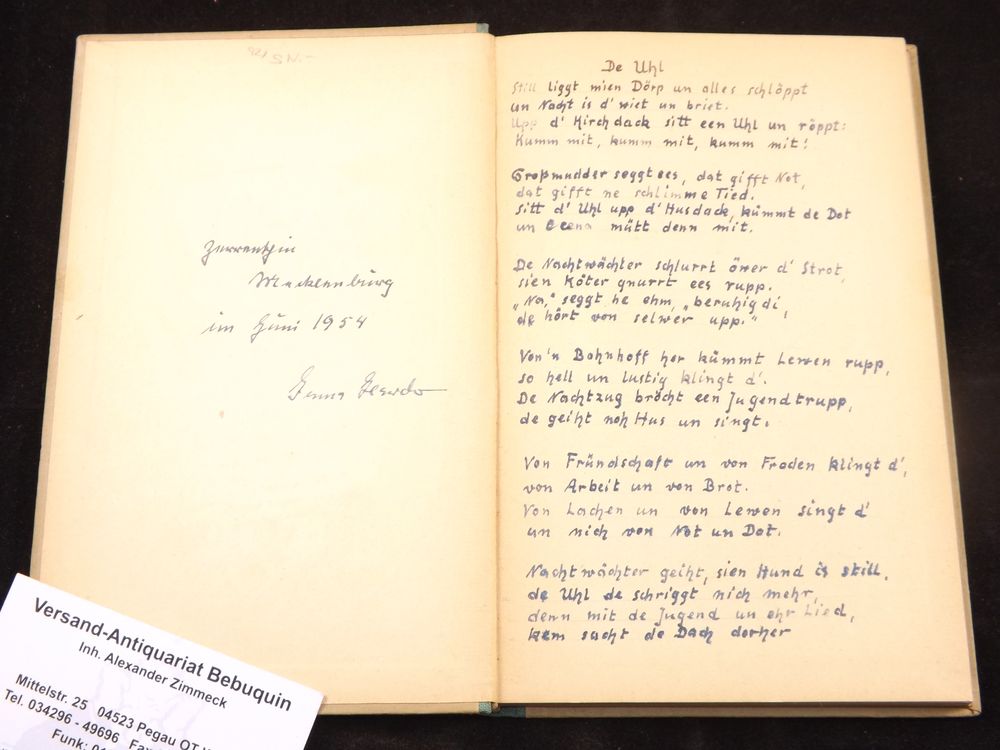 Zarrentin
Mecklenburg
im Juni 1954
De Uhl
Still liggt mien Dörp un alles schlöppt
un Nacht is d' wiet un briet.
Upp d' Kirchdack sitt een Uhl un röppt:
Kumm mit, kumm mit, kumm mit!
Großmudder seggt ees, dat gifft Not,
dat gifft ne schlimme Tied.
Sitt d' Uhl upp d' Husdack, kümmt de Dot
un mütt denn mit.
De Nachtwächter schlurrt öwer d' Strot,
sien Köter gnurrt ees rupp.
„Na," seggt he ohm, „beruhig di,
de hört von selwer upp."
Von'n Bahnhoff her kümmt Lewen rupp,
so hell un lustig klingt d'.
De Nachtzug bröcht een Jugendtrupp,
de geiht noh Hus un singt.
Von Fründschaft un von Freden klingt d',
von Arbeit un von Brot.
Von Lachen un von Lewen singt d'
un nich von Not un Dot.
Nachtwächter geiht, sien Hund is still,
de Uhl de schriggt nich mehr,
denn mit de Jugend un ehr Lied,
kem sacht de Dach dorher
Versand-Antiquariat Bebuquin
Inh. Alexander Zimmeck
Mittelstr. 25 04523 Pegau OT
Tel. 034296 - 49696 Fax
Funk: 01